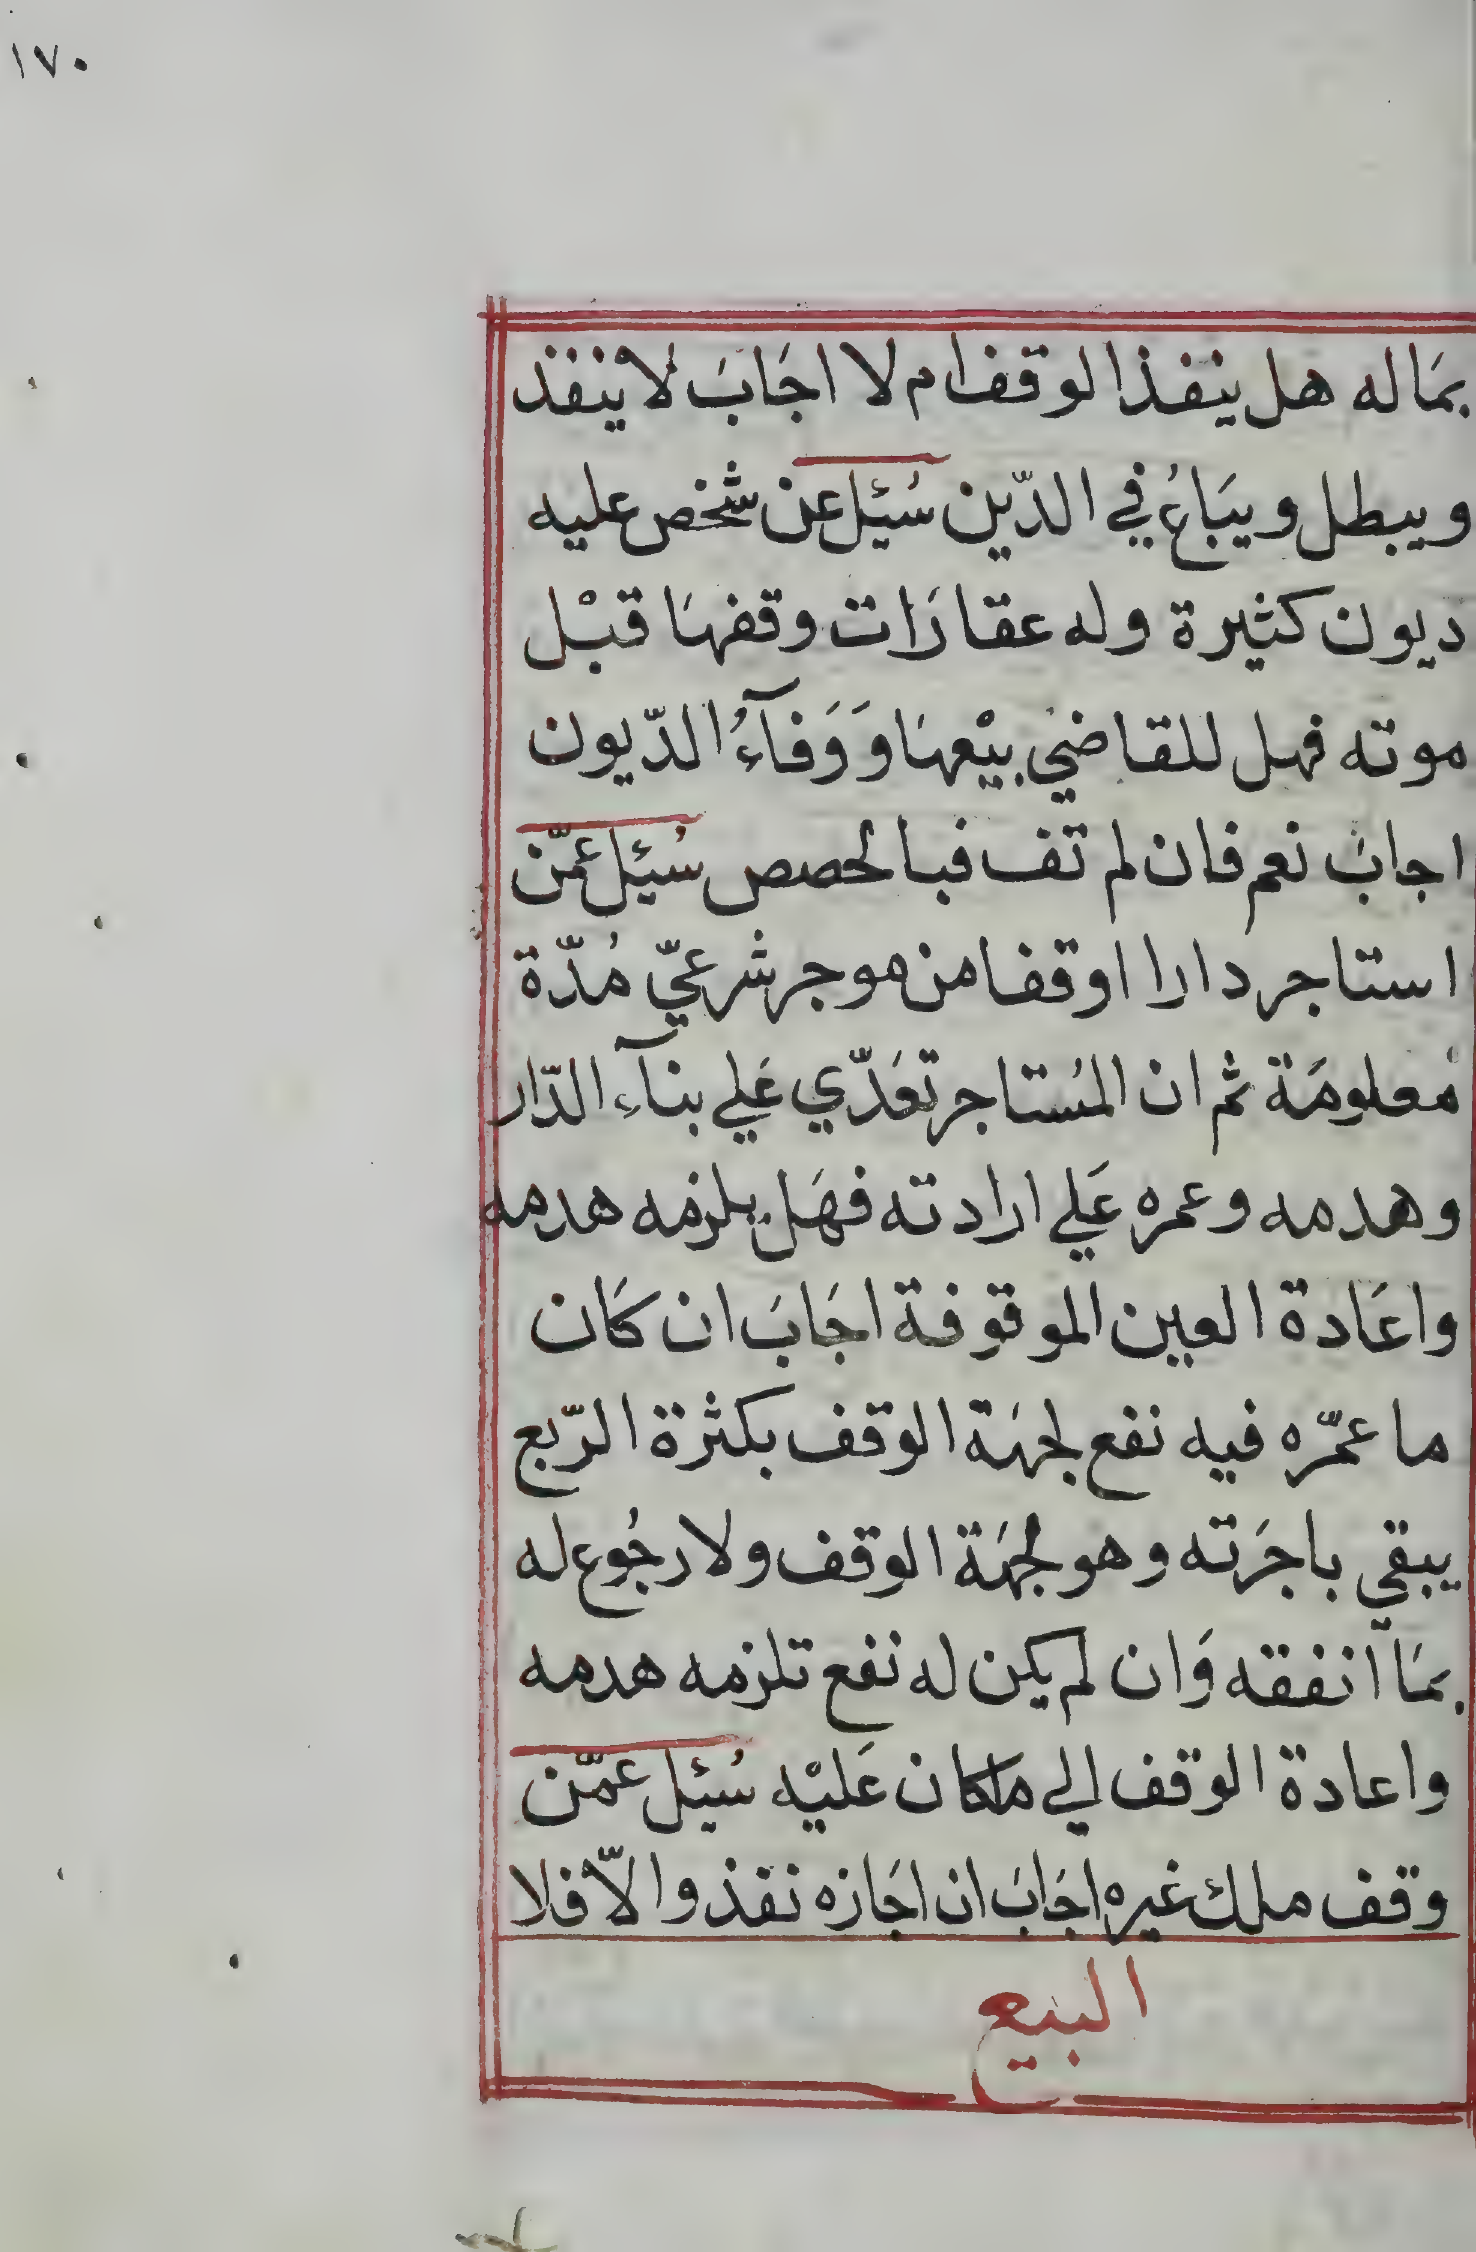 ١٧٠
بمَاله هل ينفذ الوقف ام لا اجَابَ لا ينفذ
ويبطل ويبَاعُ في الدّين سُئِل عن شخص عليه
ديون كثيرة وله عقارَات وقفهَا قبْل
موته فهل للقاضي بيْعهَا وَوَفَآءُ الدّيون
اجابَ نعم فان لم تف فبالحصص سُئِل عمّن
استاجر دارا اوقفا من موجر شرعيّ مُدّة
مَعلومَة ثم ان المُستاجر تعَدّي عَلي بنآءِ الدّار
وهدمه وعمره عَلي ارادته فهَل يلزمه هدمه
واعَادة العين الموقوفة اجَابَ ان كَان
ما عمّره فيه نفع لجهَة الوقف بكثرة الرّيع
يبقي باجرَته وهو لجهَة الوقف ولا رجُوع له
بمَا انفقه وَان لم يكن له نفع تلزمه هدمه
واعادة الوقف الي ماكان عَليْه سُئِل عمّن
وقف ملك غيره اجَابَ ان اجَازه نفذ والاّ فلا
البيع